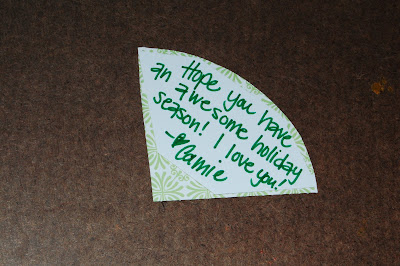 Hope you have
an awesome holiday
season! I love you!
-♥Camie